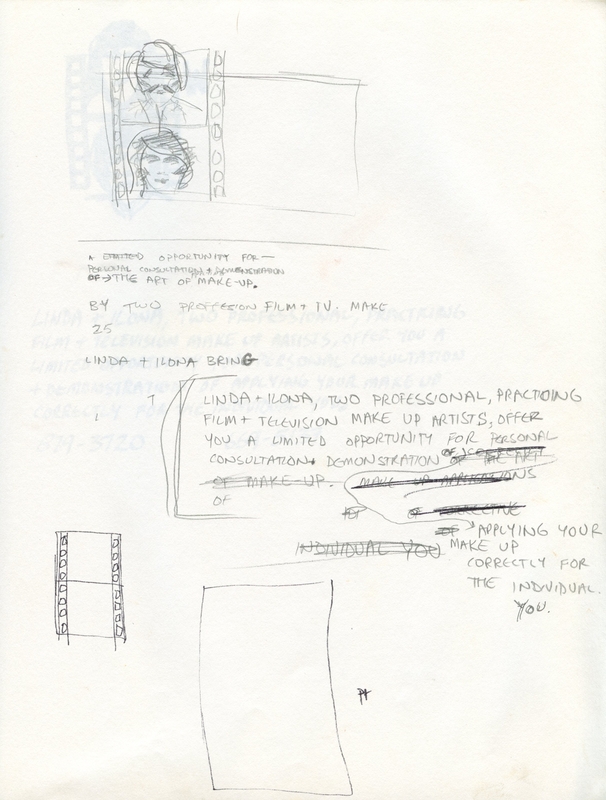 A LIMITED OPPORTUNITY FOR—
PERSONAL CONSULTATION + DEMONSTRATION
OF → THE ART OF MAKE-UP.
BY TWO PROFFESSION FILM + T.V. MAKE
25
LINDA + ILONA BRING
LINDA + ILONA, TWO PROFESSIONAL, PRACTICING
FILM + TELEVISION MAKE UP ARTISTS, OFFER
YOU A LIMITED OPPORTUNITY FOR PERSONAL
CONSULTATION + DEMONSTRATION OF THE ART
OF MAKE-UP. MAKE UP APPLICATIONS
OF
OF APPLYING YOUR
INDIVIDUAL YOU MAKE UP
CORRECTLY FOR
THE INDIVIDUAL.
YOU.
LINDA + ILONA, TWO PROFESSIONAL, PRACTICING
FILM + TELEVISION MAKE UP ARTISTS, OFFER YOU A
LIMITED OPPORTUNITY FOR PERSONAL CONSULTATION
+ DEMONSTRATION OF APPLYING YOUR MAKE UP
CORRECTLY FOR THE INDIVIDUAL